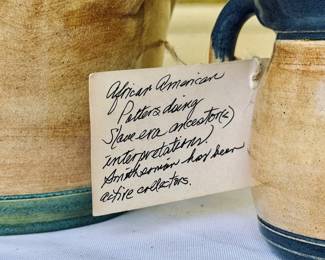 African American
Potters doing
Slave era ancestor(s)
interpretations!
Smithsonian has been
active collectors.